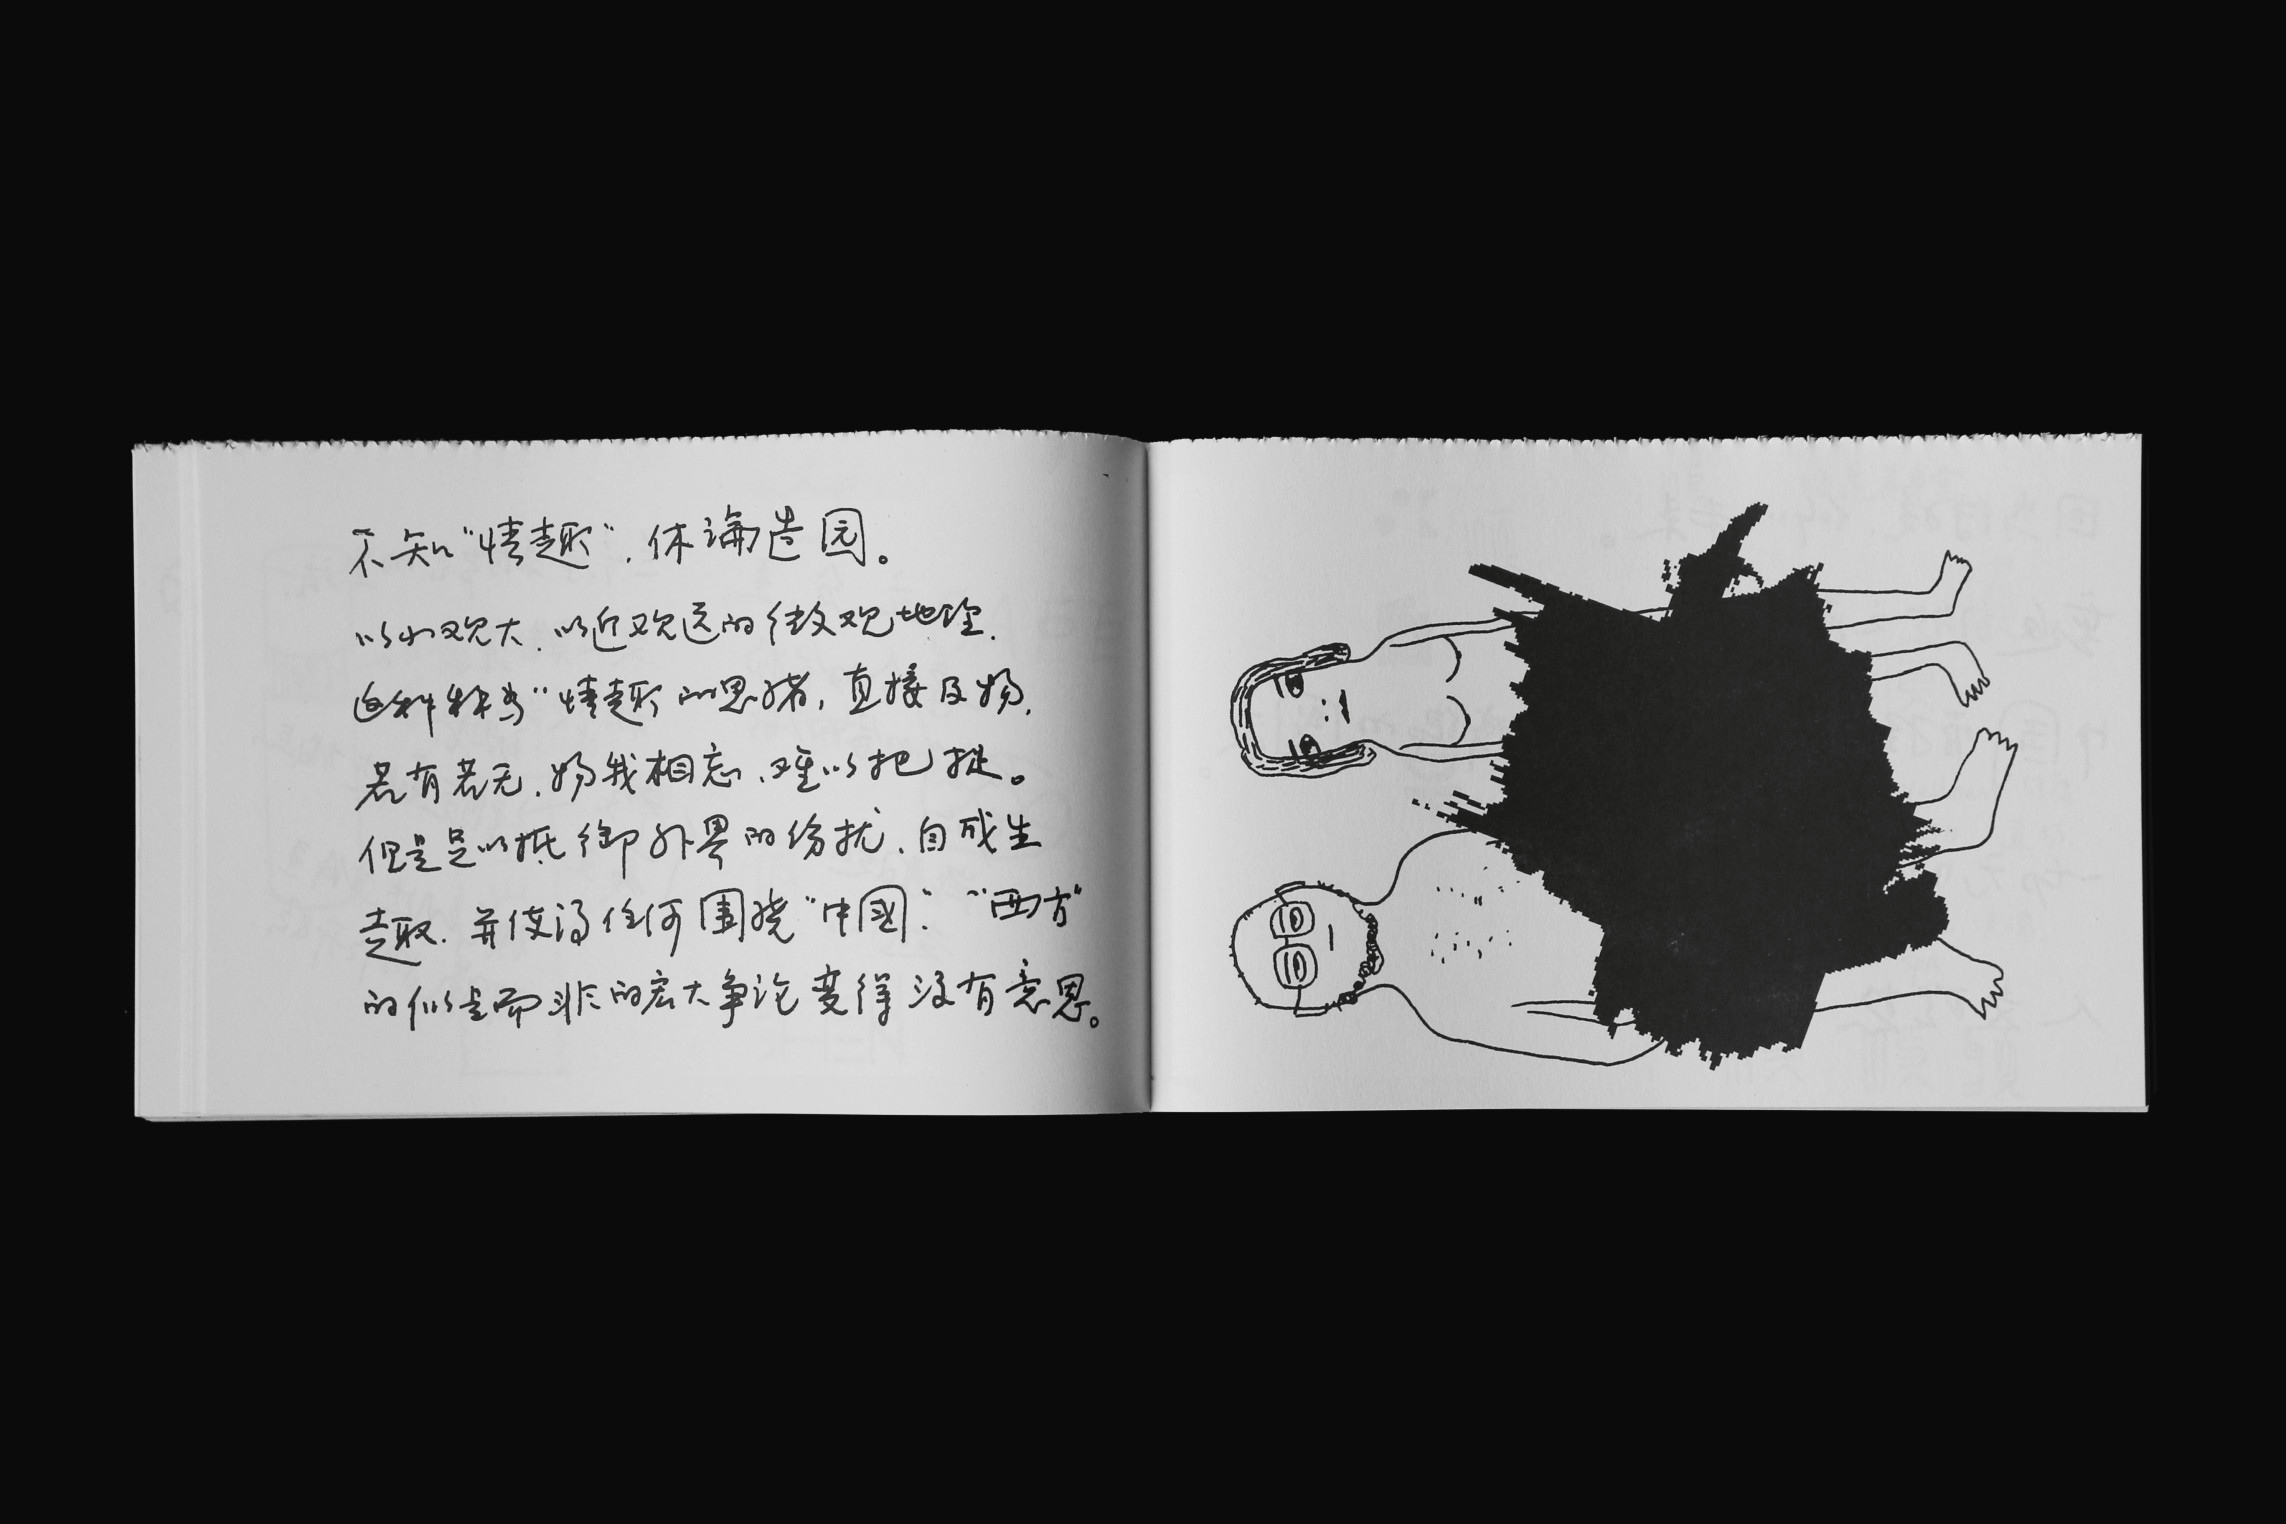 不知“情趣”，休论造园。
以小观大、以近观远的微观地理，
这种称为“情趣”的思绪，直接及物，
若有若无，物我相忘，难以把捉。
但是足以抵御外界的纷扰，自成生
趣，并使得任何围绕“中國”、“西方”
的似是而非的宏大争论变得没有意思。